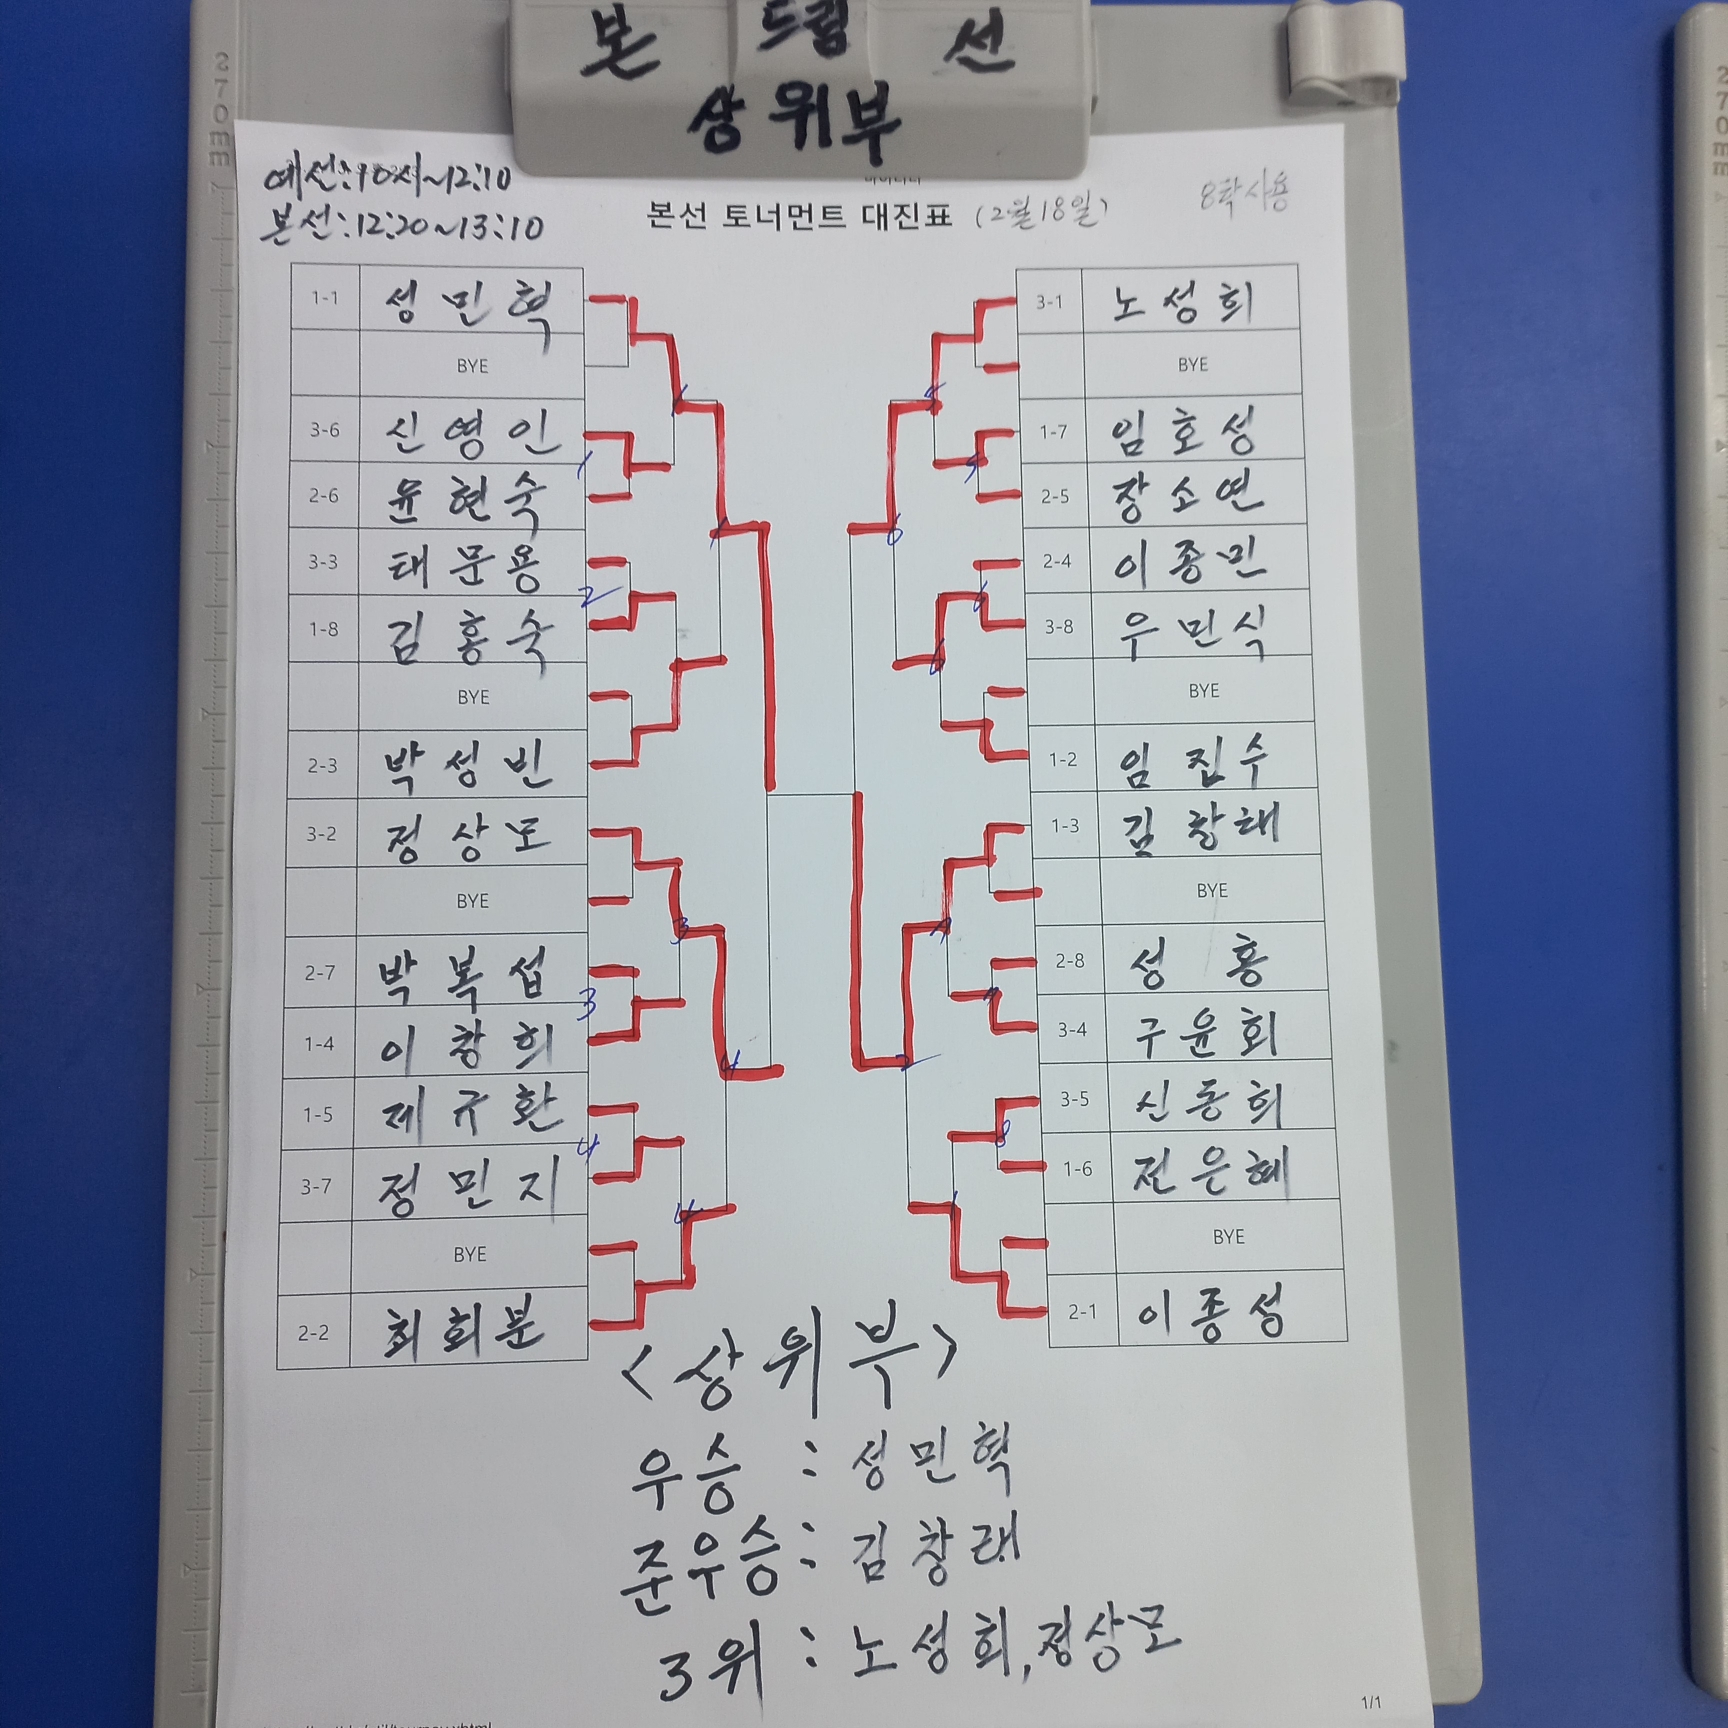 본 드림 선
상위부
예선:10시~12:10
본선:12:20~13:10
본선 토너먼트 대진표 (2월18일)
8탁사용
1-1 성민혁
BYE
3-6 신영인
2-6 윤현숙
3-3 태문용
1-8 김홍숙
BYE
2-3 박성빈
3-2 정상모
BYE
2-7 박복섭
1-4 이창희
1-5 제규환
3-7 정민지
BYE
2-2 최회분
3-1 노성희
BYE
1-7 임호성
2-5 장소연
2-4 이종민
3-8 우민식
BYE
1-2 임집수
1-3 김창래
BYE
2-8 성홍
3-4 구윤회
3-5 신동희
1-6 전은혜
BYE
2-1 이종성
<상위부>
우승 : 성민혁
준우승 : 김창래
3위 : 노성희, 정상모
1/1